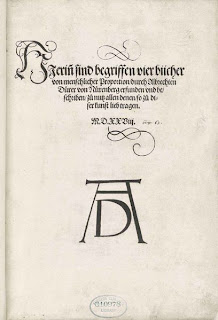 Hierinn sind begriffen vier bücher
von menschlicher Proportion durch Albrechten
Dürer von Nürenberg erfunden vnd be-
schriben zu nutz allen denen so zu di-
ser kunst lieb tragen.
M.D.XXViij.
AD